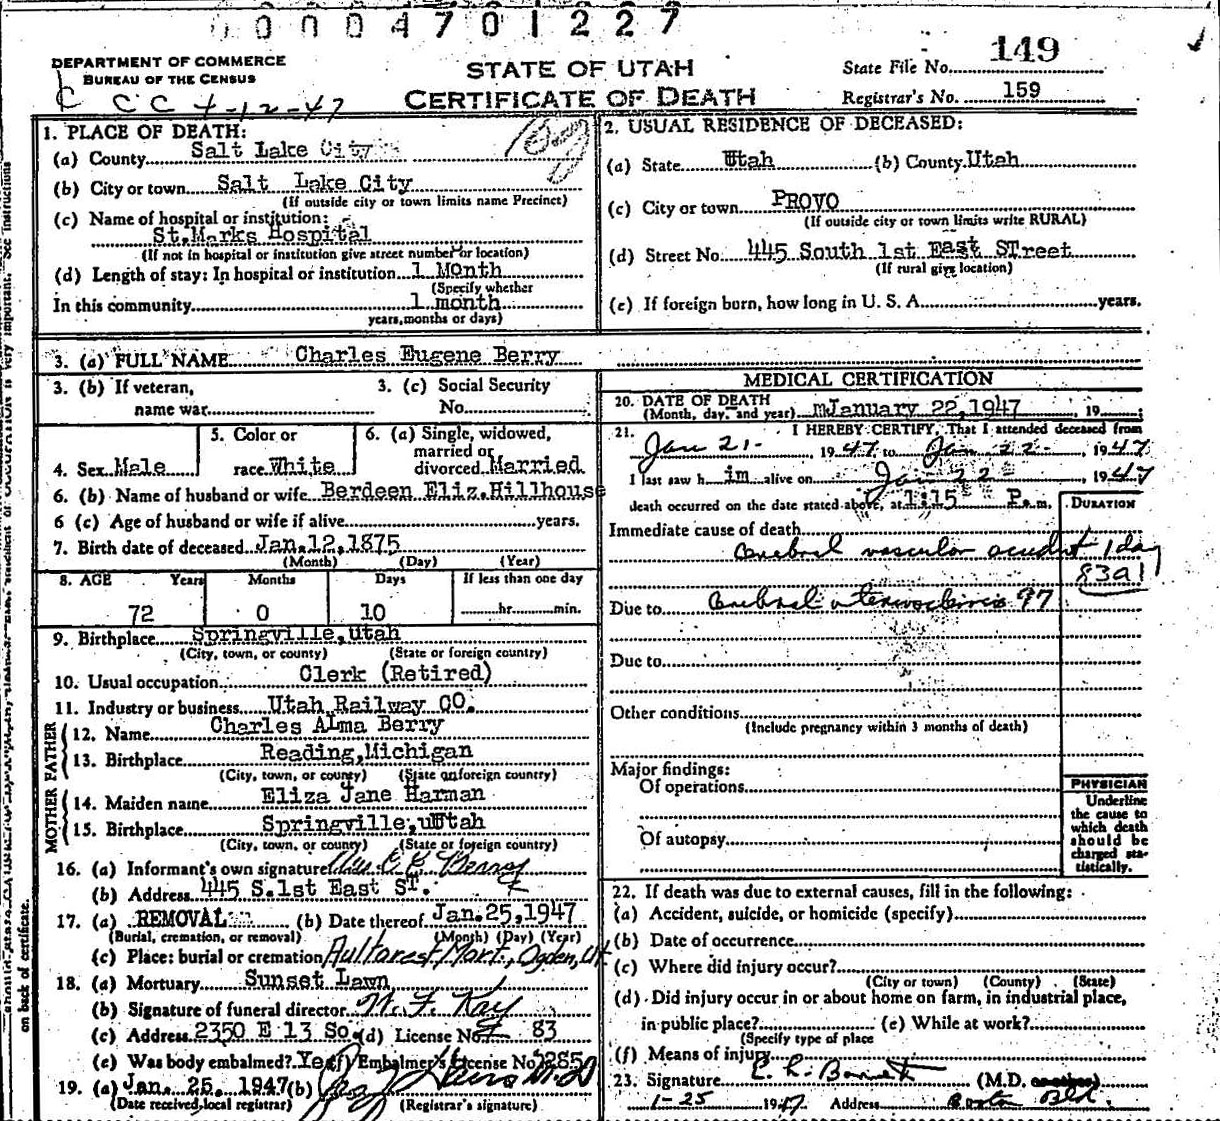 0004701227
DEPARTMENT OF COMMERCE
BUREAU OF THE CENSUS
CC 4-12-47
STATE OF UTAH
CERTIFICATE OF DEATH
State File No. 149
Registrar's No. 159
1. PLACE OF DEATH:
(a) County Salt Lake City
(b) City or town Salt Lake City
(If outside city or town limits name Precinct)
(c) Name of hospital or institution:
St.Marks Hospital
(If not in hospital or institution give street number or location)
(d) Length of stay: In hospital or institution 1 Month
(Specify whether
In this community 1 month
years, months or days)
2. USUAL RESIDENCE OF DECEASED:
(a) State Utah (b) County Utah
(c) City or town PROVO
(If outside city or town limits write RURAL)
(d) Street No. 445 South 1st East STreet
(If rural give location)
(e) If foreign born, how long in U. S. A. years.
3. (a) FULL NAME Charles Eugene Berry
3. (b) If veteran,
name war
3. (c) Social Security
No.
4. Sex Male
5. Color or
race White
6. (a) Single, widowed,
married or
divorced Married
6. (b) Name of husband or wife Berdeen Eliz.Hillhouse
6 (c) Age of husband or wife if alive years.
7. Birth date of deceased Jan.12,1875
(Month) (Day) (Year)
8. AGE Years Months Days If less than one day
72 0 10 hr. min.
9. Birthplace Springville,utah
(City, town, or county) (State or foreign country)
10. Usual occupation Clerk (Retired)
11. Industry or business Utah Railway CO.
FATHER
12. Name Charles Alma Berry
13. Birthplace Reading,Michigan
(City, town, or county) (State or foreign country)
MOTHER
14. Maiden name Eliza Jane Harman
15. Birthplace Springville,uUtah
(City, town, or county) (State or foreign country)
16. (a) Informant's own signature Mrs C E Berry
(b) Address 445 S.1st East ST.
17. (a) REMOVAL (b) Date thereof Jan.25,1947
(Burial, cremation, or removal) (Month) (Day) (Year)
(c) Place: burial or cremation Aultorest Mort., Ogden, Ut
18. (a) Mortuary Sunset Lawn
(b) Signature of funeral director W. F. Kay
(c) Address 2350 E 13 So. (d) License No. 83
(e) Was body embalmed? Yes (f) Embalmer's License No. 285
19. (a) Jan. 25, 1947 (b)
(Date received local registrar) (Registrar's signature)
MEDICAL CERTIFICATION
20. DATE OF DEATH
(Month, day, and year) January 22,1947, 19
21. I HEREBY CERTIFY, That I attended deceased from
Jan 21-, 1947 to Jan 22-, 1947
I last saw h im alive on Jan 22, 1947
death occurred on the date stated above, at 1:15 P. m.
DURATION
Immediate cause of death
Cerebral vascular accident 1 day
83a1
Due to Cerebral arteriosclerosis 97
Due to
Other conditions
(Include pregnancy within 3 months of death)
Major findings:
Of operations
Of autopsy
PHYSICIAN
Underline
the cause to
which death
should be
charged sta-
tistically.
22. If death was due to external causes, fill in the following:
(a) Accident, suicide, or homicide (specify)
(b) Date of occurrence
(c) Where did injury occur?
(City or town) (County) (State)
(d) Did injury occur in or about home on farm, in industrial place,
in public place? (e) While at work?
(Specify type of place
(f) Means of injury
23. Signature (M.D. or other)
1-25 1947 Address Boston Bld.
on back of certificate.